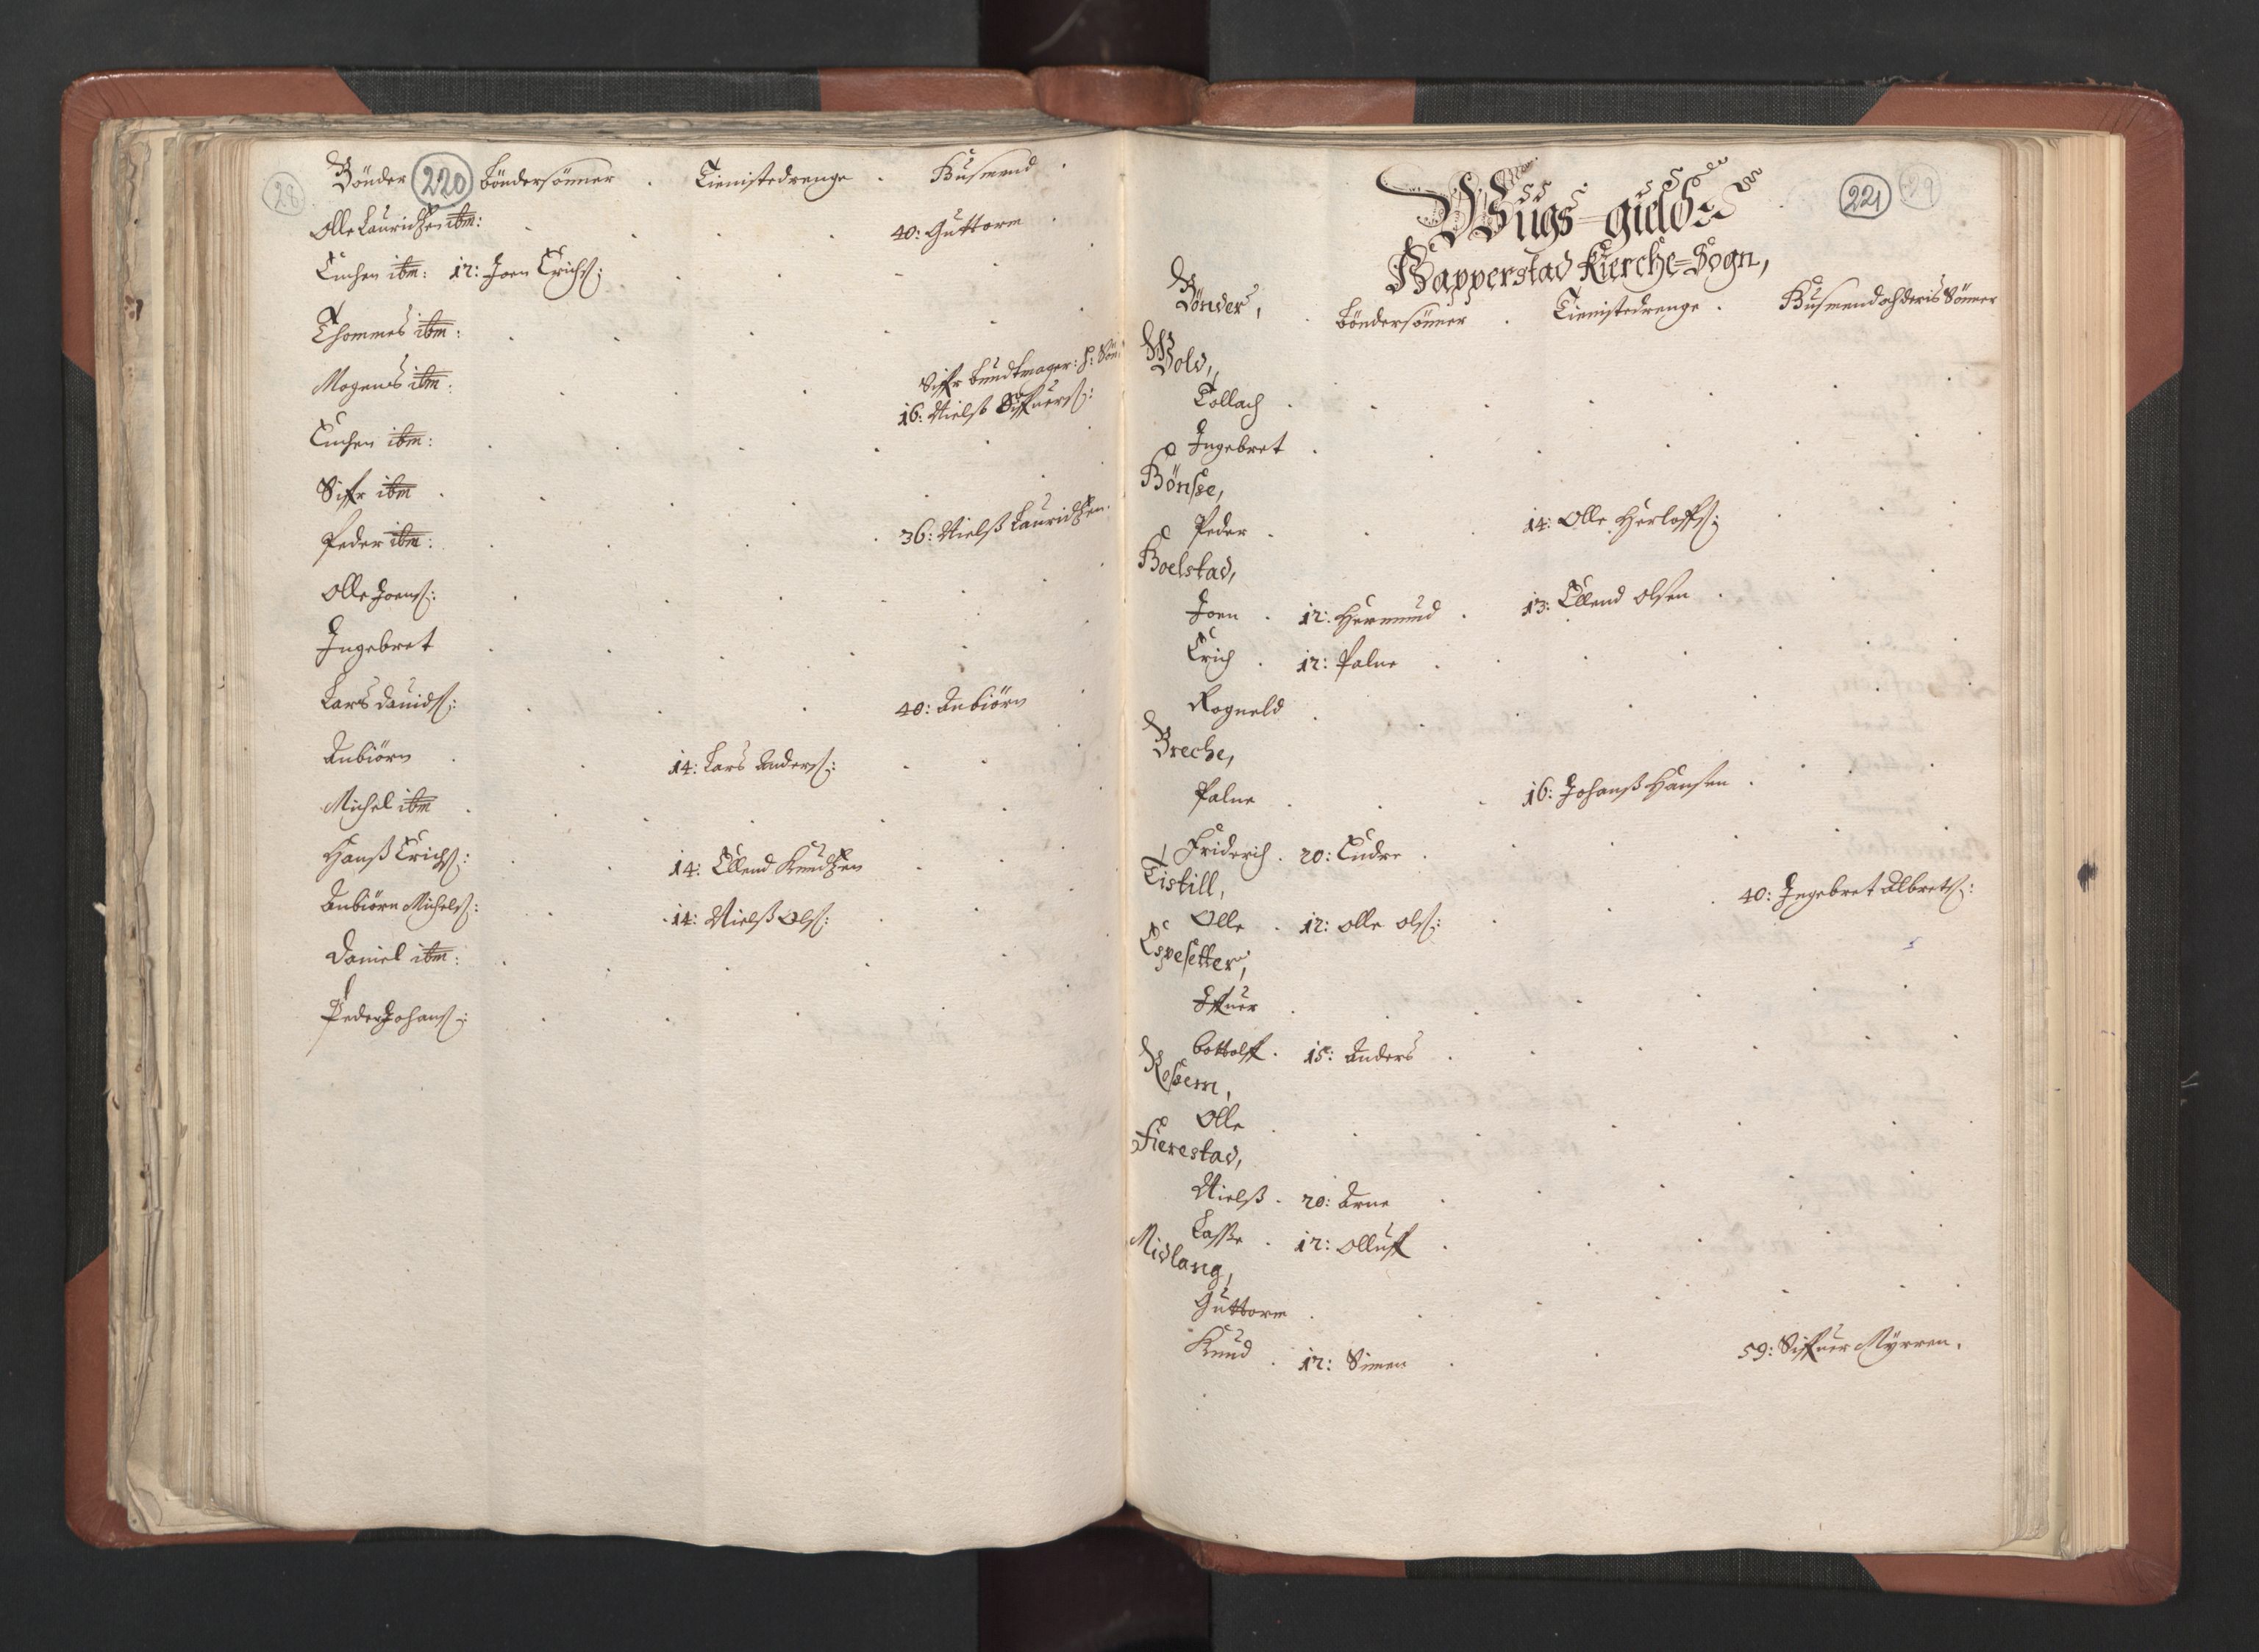 28
Bönder 220 Böndersönner . Tienistedrenge . Husmend .
Olle Lauridtzen ibm: 40: Guttorm
Enchen ibm: 12: Joen Erichs:
Thommes ibm:
Mogens ibm: Siffr Bundtmager: h: Sön:
16: Nielß Siffuers:
Enchen ibm:
Siffr ibm
Peder ibm: 36: Nielß Lauridtzen.
Olle Joens:
Ingebret
Lars Davids: 40: Anbiörn
Anbiörn 14: Lars Anders:
Michel ibm
Hanß Erichs: 14: Ellend Knudtzen
Anbiörn Michels: 14: Nielß Ols:
Daniel ibm:
Peder Johans:
221 29
Wigs=gield
Rapperstad Kierche=Sogn,
Bönder, Böndersönner . Tienistedrenge . Husmend och deris Sönner
Wold,
Tollach
Ingebret
Bönsee,
Peder 14: Olle Herloffs:
Boelstad,
Joen . 12: Hermund . 13: Ellend Olsen
Erich . 12: Palne
Rogneld
Breche,
Palne 16: Johanß Hansen
Friderich . 20: Endre
Tistill,
Olle . 12: Olle Ols: 40: Ingebret Albrets:
Espesetter,
Iffuer
Bottolff . 15: Anders
Rosem,
Olle
Fierestad,
Nielß . 20: Arne
Lasse . 12: Olluff
Midlang,
Guttorm
Knud . 12: Simen 59: Siffuer Myrren.